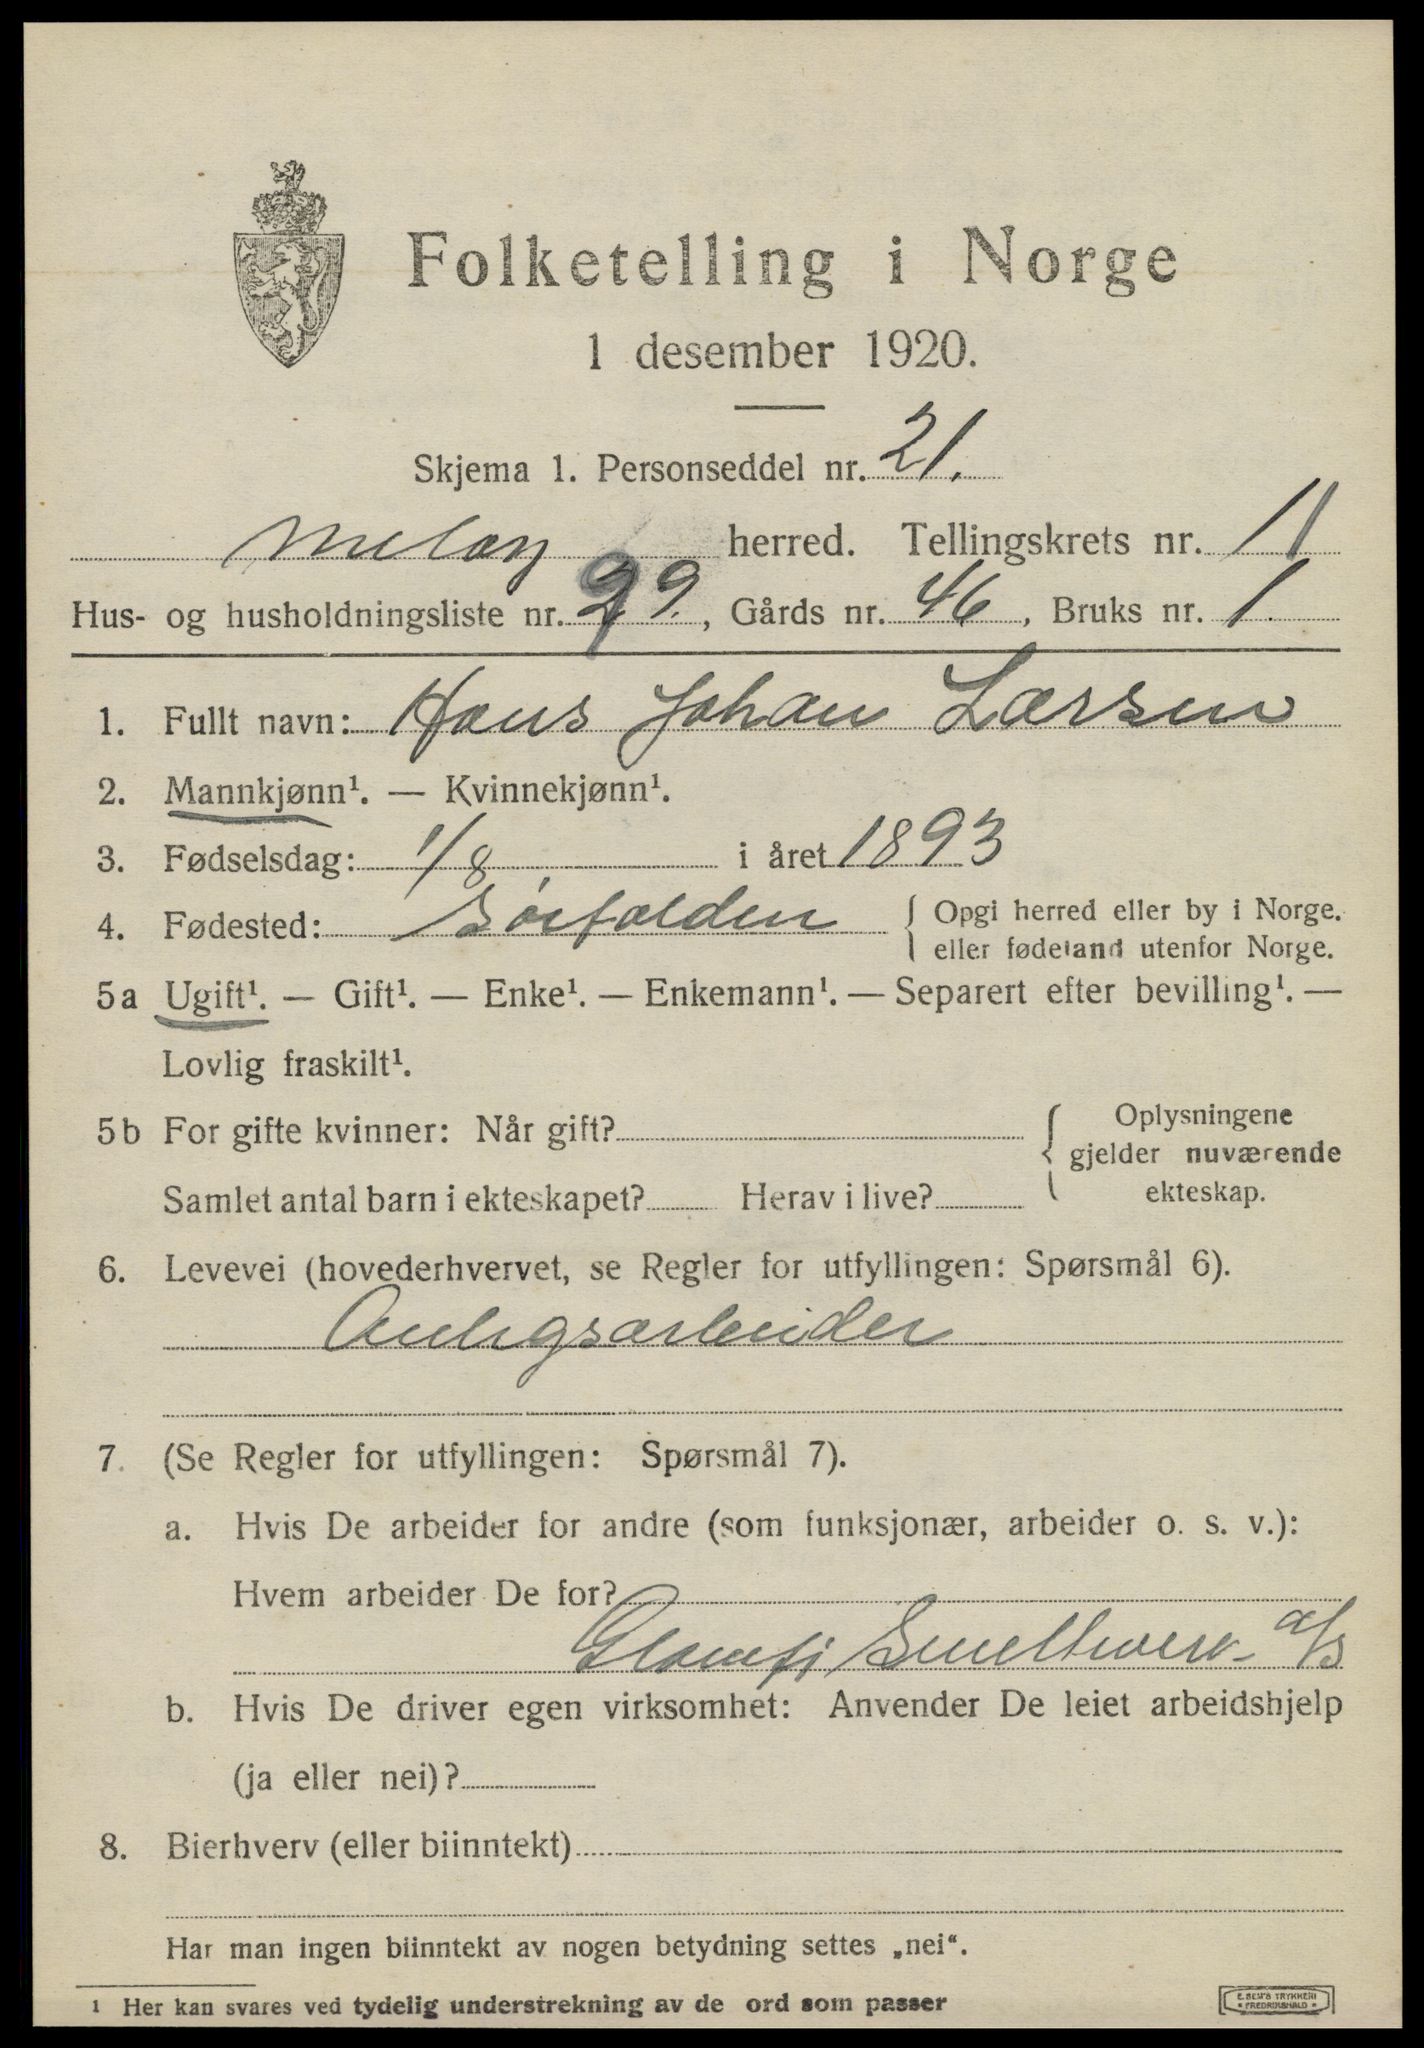 Folketelling i Norge
1 desember 1920.
Skjema 1. Personseddel nr. 21.
Meløy herred. Tellingskrets nr. 11
Hus- og husholdningsliste nr. 29., Gårds nr. 46, Bruks nr. 1.
1. Fullt navn: Hans Johan Larsen
2. Mannkjønn¹. — Kvinnekjønn¹.
3. Fødselsdag: 1/8 i året 1893
4. Fødested: Sørfolden { Opgi herred eller by i Norge.
eller fødeland utenfor Norge.
5a Ugift¹. — Gift¹. — Enke¹. — Enkemann¹. — Separert efter bevilling¹. —
Lovlig fraskilt¹.
5b For gifte kvinner: Når gift? { Oplysningene
gjelder nuværende
Samlet antal barn i ekteskapet? Herav i live? ekteskap.
6. Levevei (hovederhvervet, se Regler for utfyllingen: Spørsmål 6).
Anlegsarbeider
7. (Se Regler for utfyllingen: Spørsmål 7).
a. Hvis De arbeider for andre (som funksjonær, arbeider o. s. v.):
Hvem arbeider De for?
Glomfj Smelteverk a/s
b. Hvis De driver egen virksomhet: Anvender De leiet arbeidshjelp
(ja eller nei)?
8. Bierhverv (eller biinntekt)
Har man ingen biinntekt av nogen betydning settes „nei“.
1 Her kan svares ved tydelig understrekning av de ord som passer
E. SEM'S TRYKKERI
* FREDRIKSHALD *